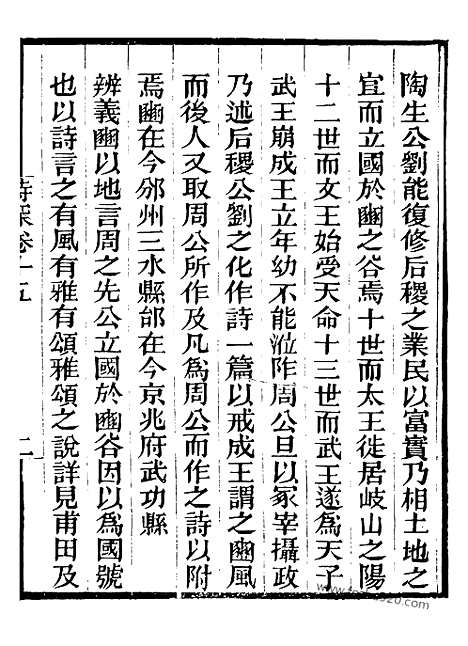 陶生公劉能復修后稷之業民以富實乃相土地之
宜而立國於豳之谷焉十世而太王徙居岐山之陽
十二世而文王始受天命十三世而武王遂爲天子
武王崩成王立年幼不能涖阼周公旦以冢宰攝政
乃述后稷公劉之化作詩一篇以戒成王謂之豳風
而後人又取周公所作及凡爲周公而作之詩以附
焉豳在今邠州三水縣邰在今京兆府武功縣
辨義豳以地言周之先公立國於豳谷因以爲國號
也以詩言之有風有雅有頌雅頌之說詳見甫田及
卷十五
二